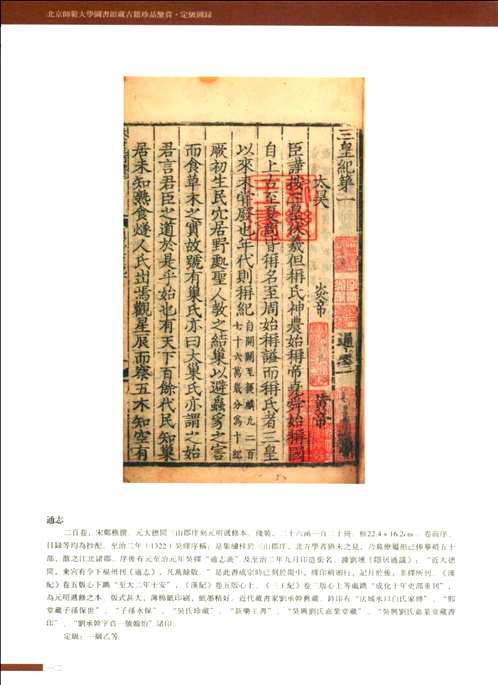 北京師範大學圖書館藏古籍珍品鑒賞·定級圖録
三皇紀第一
通志一
太昊 炎帝 黄帝
臣謹按三皇伏羲但稱氏神農始稱帝堯舜始稱國
自上古至夏商皆稱名至周始稱諡而稱氏者三皇
以來未嘗廢也年代則稱紀自開闢至獲麟九二百七十六萬歲分為十紀
厥初生民穴居野處聖人教之結巢以避蟲豸之害
而食草木之實故號有巢氏亦曰大巢氏亦謂之始
君言君臣之道於是乎始也有天下百餘代民知巢
居未知熟食燧人氏出焉觀星辰而察五木知空有
通志
二百卷,宋鄭樵撰。元大德間三山郡庠刻元明遞修本。綫裝,二十六函一百二十冊。框22.4×16.2cm。卷前序、
目録等均爲抄配。至治二年(1322)吴繹序稱:是集繡梓於三山郡庠,北方學者猶未之見,乃募僚屬捐己俸摹褙五十
部,散之江北諸郡。序後有元至治元年吴繹“通志疏”及至治二年九月印造銜名。據劉壎《隱居通議》:“近大德
間,東宮有令下福州刊《通志》,凡萬餘版。”是此書成宗時已刻於閩中,繹印褙頒行,記月於後,非繹所刊。《漢
紀》卷五版心下鐫“至大二年十安”,《漢紀》卷五版心上、《三王紀》卷二版心上等處鐫“成化十年史部重刊”,
為元明遞修之本。版式甚大,薄棉紙印刷,紙墨精好。近代藏書家劉承幹舊藏。鈐印有“法域水曰自氏家傳”、“鄞
堂藏子孫保世”、“子孫永保”、“吴氏珍藏”、“新樂王書”、“吴興劉氏嘉業堂藏”、“吴興劉氏嘉業堂藏書
印”、“劉承幹字貞一號翰怡”諸印。
定級:一級乙等
一二